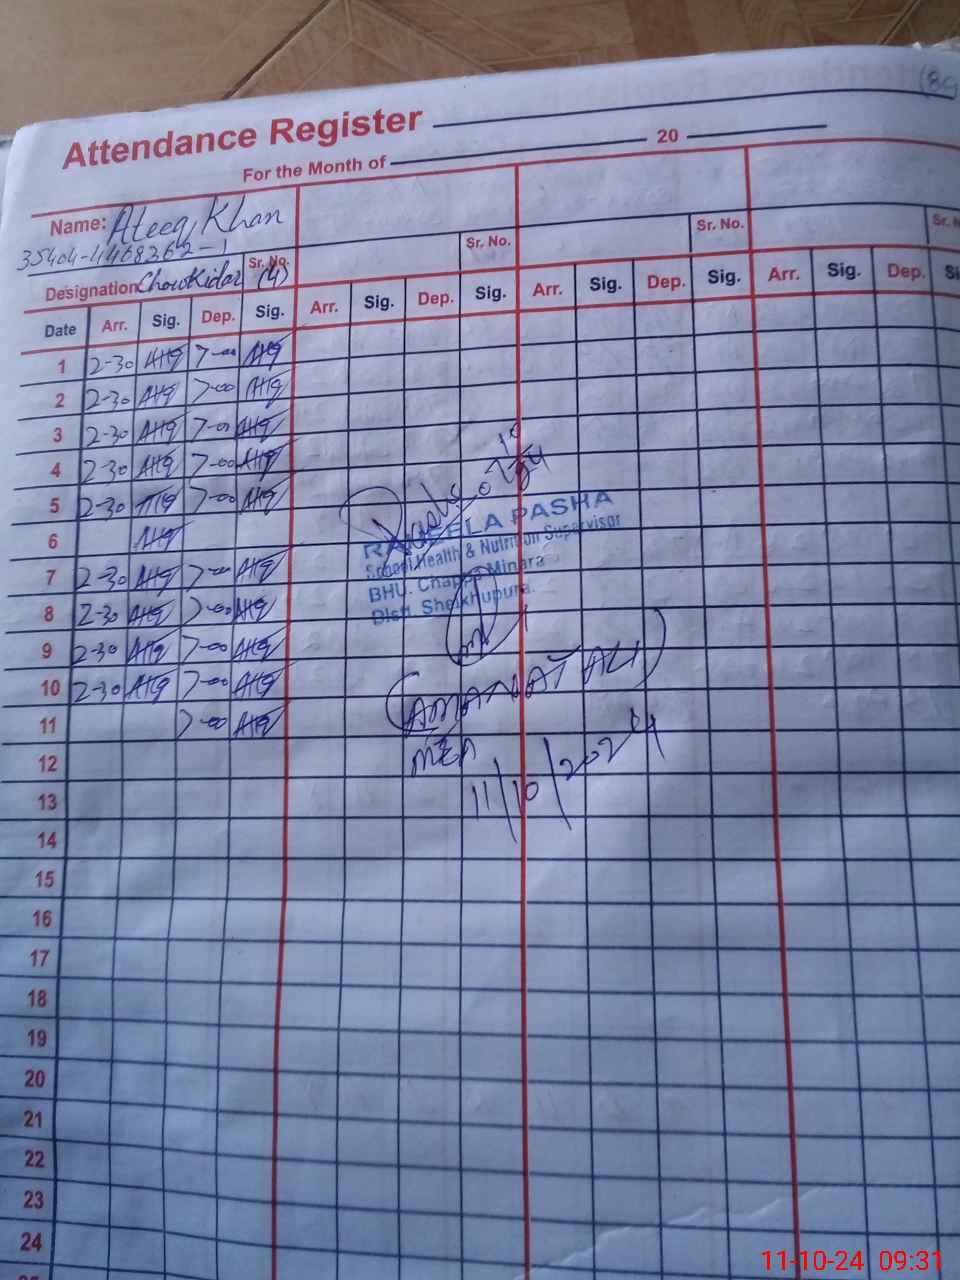 (89
Attendance Register
For the Month of 20
Name: Ateeq Khan
35404-4468362-1
Sr. No. Sr. No. Sr. No. Sr. N
Designation Chowkidar (4)
Date Arr. Sig. Dep. Sig. Arr. Sig. Dep. Sig. Arr. Sig. Dep. Sig. Arr. Sig. Dep. Si
1 2-30 Attq 7-00 Attq
2 2-30 Attq 7-00 Attq
3 2-30 Attq 7-00 Attq
4 2-30 Attq 7-00 Attq
5 2-30 Attq 7-00 Attq
6 Attq
7 2-30 Attq 7-00 Attq
8 2-30 Attq 7-00 Attq
9 2-30 Attq 7-00 Attq
10 2-30 Attq 7-00 Attq
11 7-00 Attq
RAHEELA PASHA
School Health & Nutrition Supervisor
BHU. Chappa Minara
Distt Sheikhupura.
(AMANAT ALI)
MEA
11/10/2024
12
13
14
15
16
17
18
19
20
21
22
23
24
11-10-24 09:31